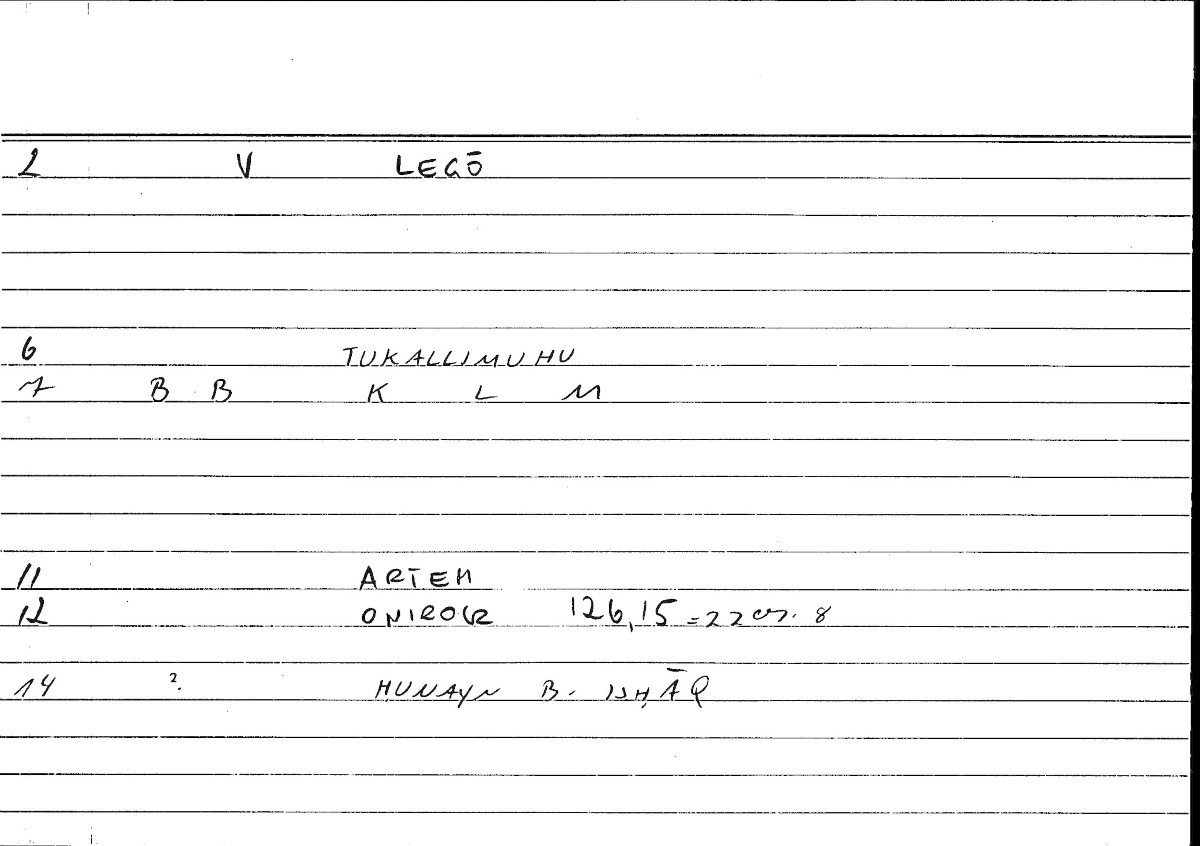 2 V LEGŌ
6 TUKALLIMUHU
7 B B K L M
11 ARTEM
12 ONIROCR 126,15 =
14 ? ḤUNAYN B. ISḤĀQ